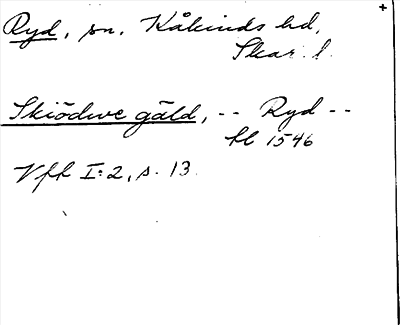 Ryd, sn. Kåkinds hd,
Skar. l.
Skiödwe gäld, -- Ryd --
hl 1546
Vfh I:2, s. 13.